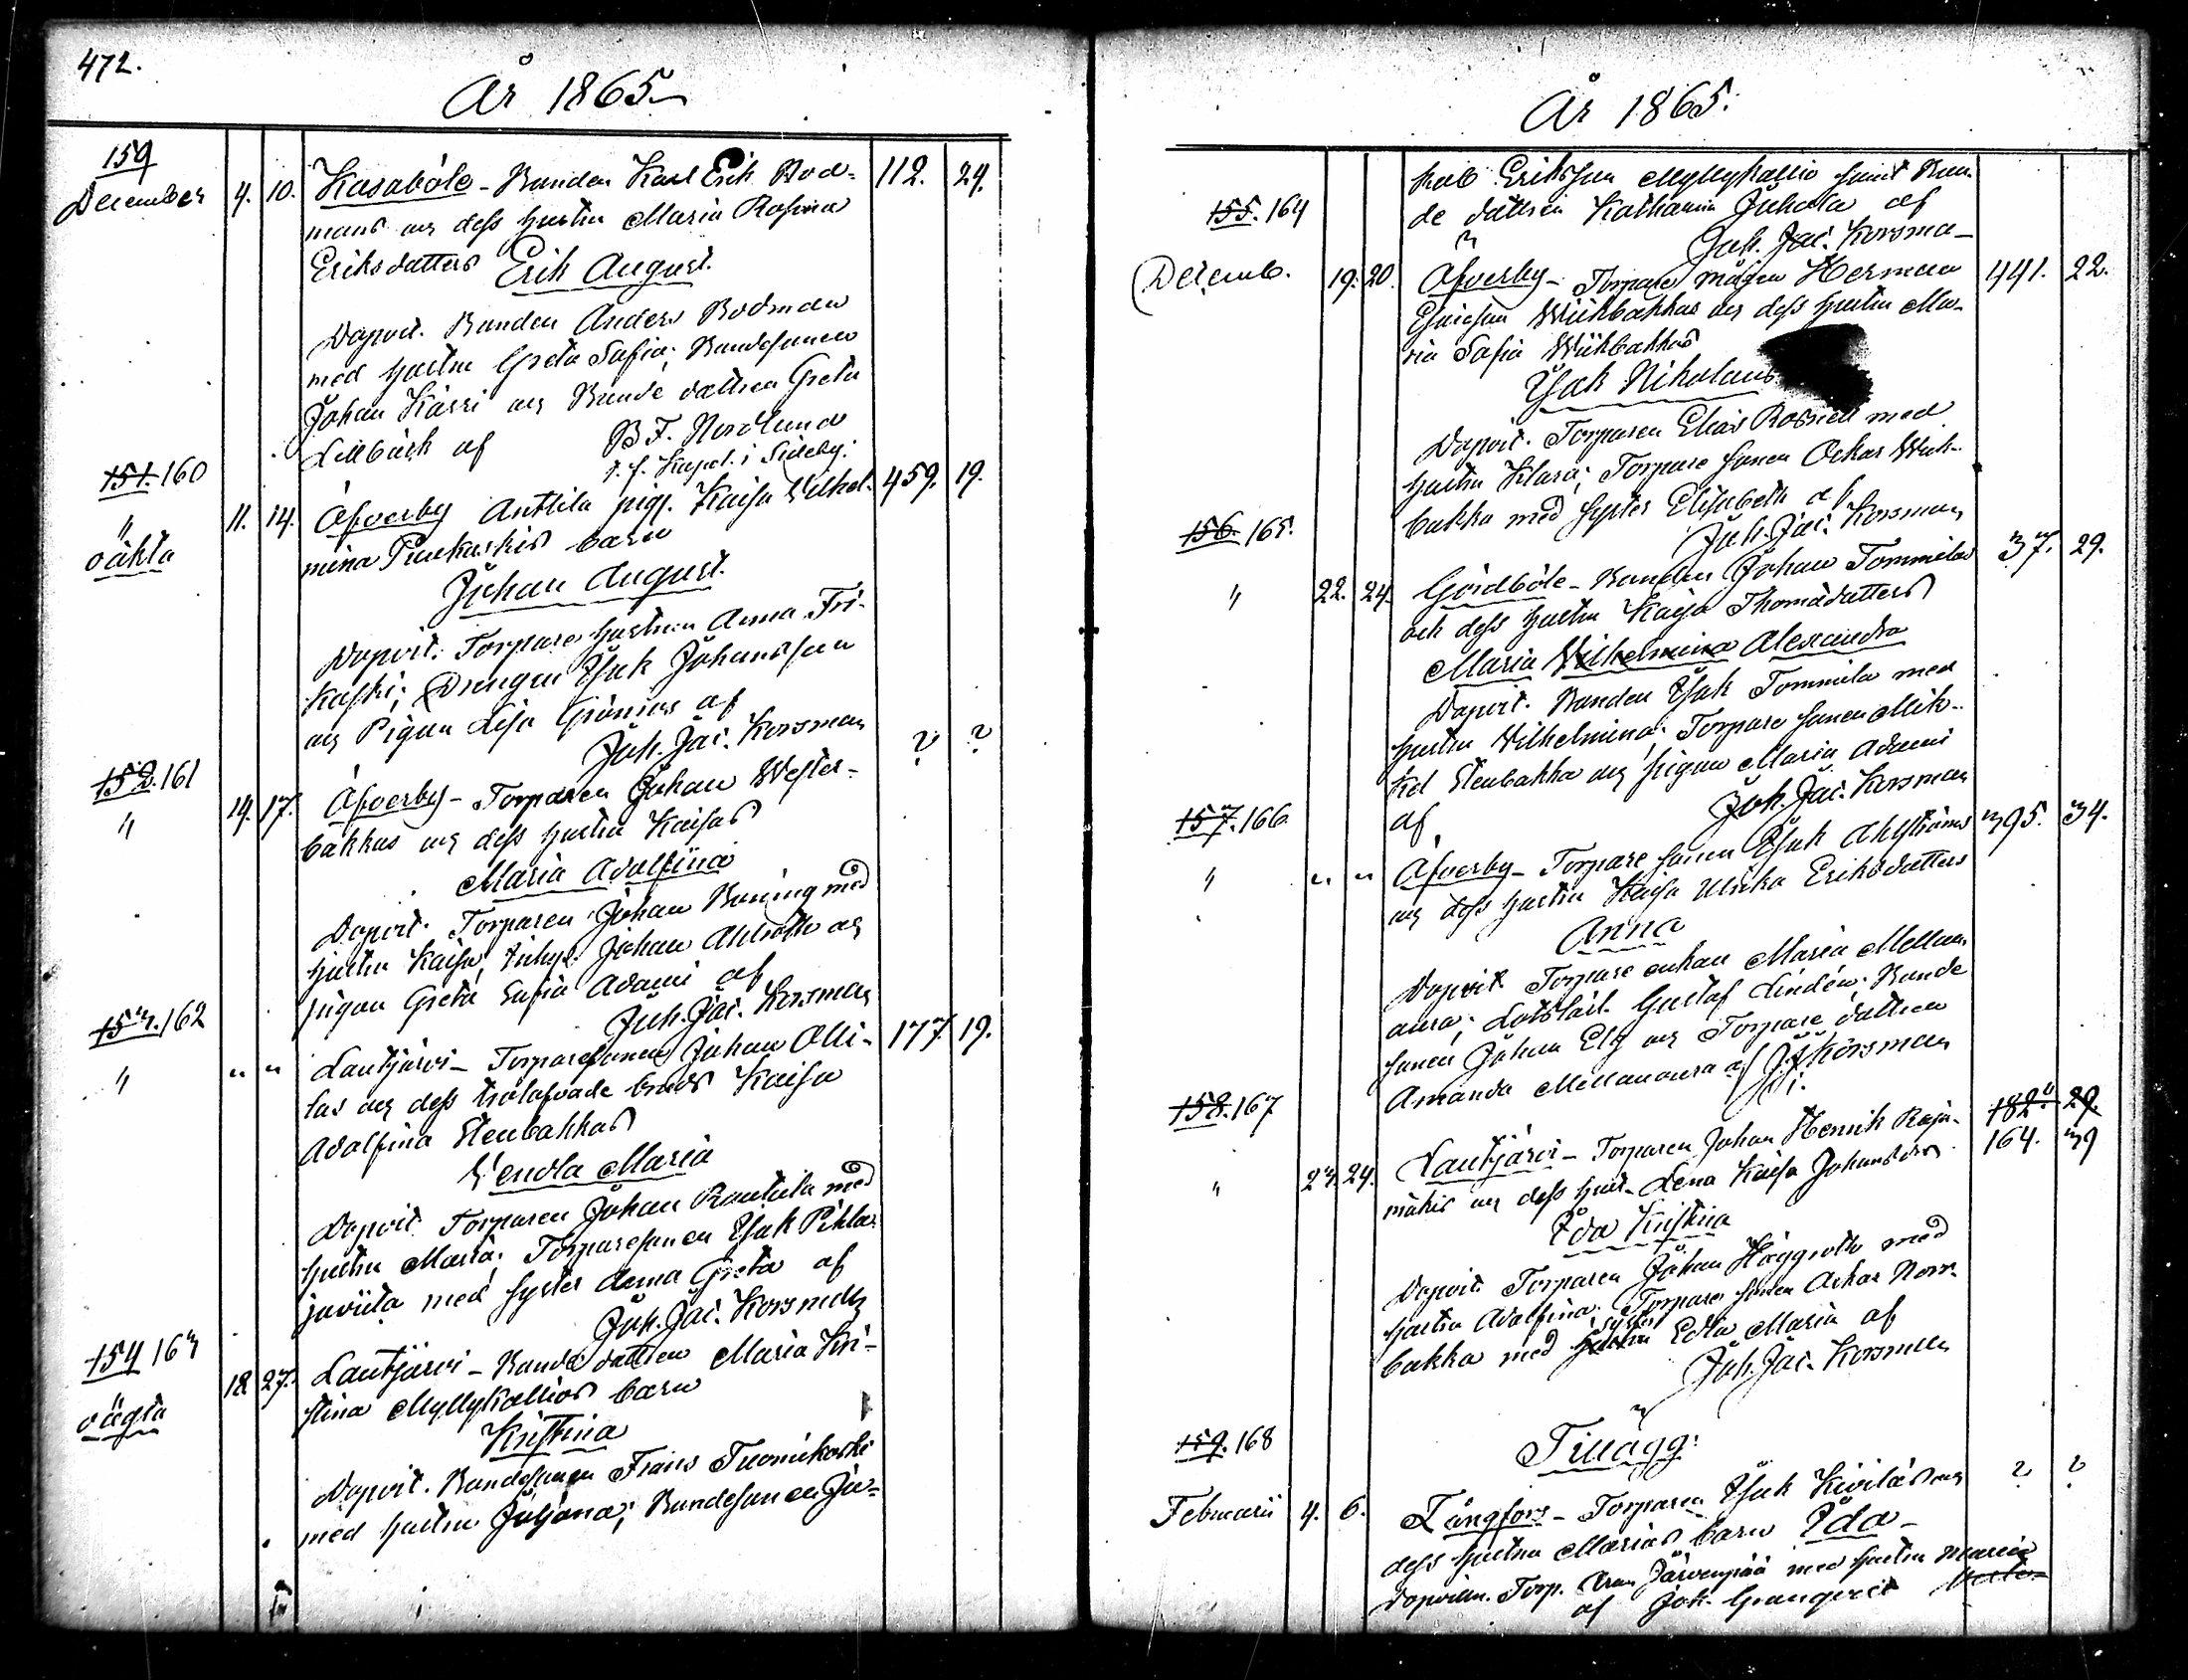 472.
År 1865
159
December 4. 10. Kasaböle - Bonden Karl Erik Bod= 112. 24.
mans och dess hustru Maria Rosina
Eriksdatters Erik August.
Dopvit. Bonden Anders Bodman
med hustru Greta Sofia; Bondesonen
Johan Kärri och Bonde dattren Greta
Lillbäck af B F. Nordlund
t. f. Kapel. i Sideby.
151. 160
" 11. 14. Åfverby Anttila pig. Kaisa Vilhel- 459. 19.
oäkta mina Puukaskis barn
Johan August.
Dopvit. Torpare hustrun Anna
Drengen Isak Johansson
och Pigan Lisa Grönros af
Joh. Jac. Korsman
152. 161
" 14. 17. Åfverby - Torparen Johan Wester- ? ?
bakkas och dess hustru Kaisas
Maria Adolfina
Dopvit. Torparen Johan Buning med
hustru Kaisa; Johan Ahlroth och
pigan Greta Sofia Adami af
Joh. Jac. Korsman
153. 162
" " " Lautjärvi - Torparesonen Johan Olli- 177. 19.
las och dess trolofvade bruds Kaisa
Adolfina Stenbakkas
Vendla Maria
Dopvit Torparen Johan Rautiola med
hustru Maria; Torparesonen Isak Pihla-
javiita med syster Anna Greta af
Joh. Jac. Korsman
154 163
" 18 27. Lautjärvi - Bonde dattren Maria Kri-
oägta stina Myllykallios barn
Kristina
Dopvit. Bondesonen Frans Tuomikoski
med hustru Juljana; Bondesonen Ja=
År 1865.
kob Eriksson Myllykallio samt Bon-
155. 164 de dattren Katharina Juhola af
Joh. Jac. Korsman
Decemb. 19. 20. Åfverby - Torpare mågen Herman 441. 22.
Wiikbakkas och dess hustru Ma-
ria Sofia Wiikbakkas
Isak Nikolaus
Dopvit. Torparen Elias Rosnell med
hustru Klara; Torpare sonen Oskar Wiik-
bakka med syster Elisabeth af
Joh. Jac. Korsman
156. 165.
" 22. 24. Gördböle - Bonden Johan Tommilas 37. 29.
och dess hustru Kajsa Thomadatters
Maria Wilhelmina Alexandra
Dopvit. Bonden Isak Tommila med
hustru Vilhelmina; Torpare sonen Mik-
kel Stenbakka och pigan Maria Adami
af Joh. Jac. Korsman
157. 166.
" " " Åfverby - Torpare sonen Isak Ahlströms 395. 34.
och dess hustru Kajsa Ulrika Eriksdatters
Anna
Dopvit Torpare enkan Maria Mellan-
aura; Gustaf Lindén; Bonde
sonen Johan Elg och Torpare dattren
Amanda Mellanaura af J J Korsman
158. 167
" 23. 24. Lautjärvi - Torparen Johan Henrik Raja- 182. 29.
mäkis och dess hust. Lena Kaisa Johansdrs 164. 39
Ida Kristina
Dopvit Torparen Johan Häggroth med
hustru Adolfina; Torpare sonen Oskar Norr-
bakka med hustru syster Edla Maria af
Joh. Jac. Korsman
159. 168 Tillägg:
Februarii 4. 6. Långfors - Torparen Isak Kivilås och ? ?
dess hustru Marias barn Ida -
Dopvittn. Torp. Järvenpää med hustru Maria
af Joh. Granqvist